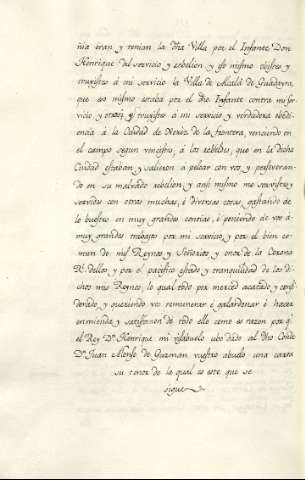 nia eran y tenian la dha Villa por el Infante Don
Henrique del servicio y rebelion y esso mismo distes y
truxistes á mi servicio la Villa de Alcalá de Guadayra,
que eso mismo estaba por el dho Infante contra mi ser
vicio y truxistes á mi servicio y verdadera obedi
encia á la Ciudad de Xerez de la frontera, venciendo en
el campo segun vencistes, á los rebeldes, que en la dicha
Ciudad estaban y salieron a pelear con vos y perseveran
do en su malvada rebelion y assi mismo me servistes y
servides con otras muchas, é diversas cosas, gastando de
lo vuestro en muy grandes contias, é poniendo de vos á
muy grandes trabajos por mi servicio, y por el bien co
mun de mis Reynos y Señorios y onor de la Corona
Rl. dellos, y por el pacifico estado y tranquilidad de los di
chos mis Reynos, lo qual todo por merced acatado, y consi
derado, y queriendo vos remunerar é galardonar é hacer
enmienda, y satisfazon de todo ello como es razon por q.
el Rey Dn Henrique mi visabuelo ubo dado al dho Conde
Dn Juan Alonso de Guzman vuestro abuelo una carta
su tenor de la qual es este que se
sigue